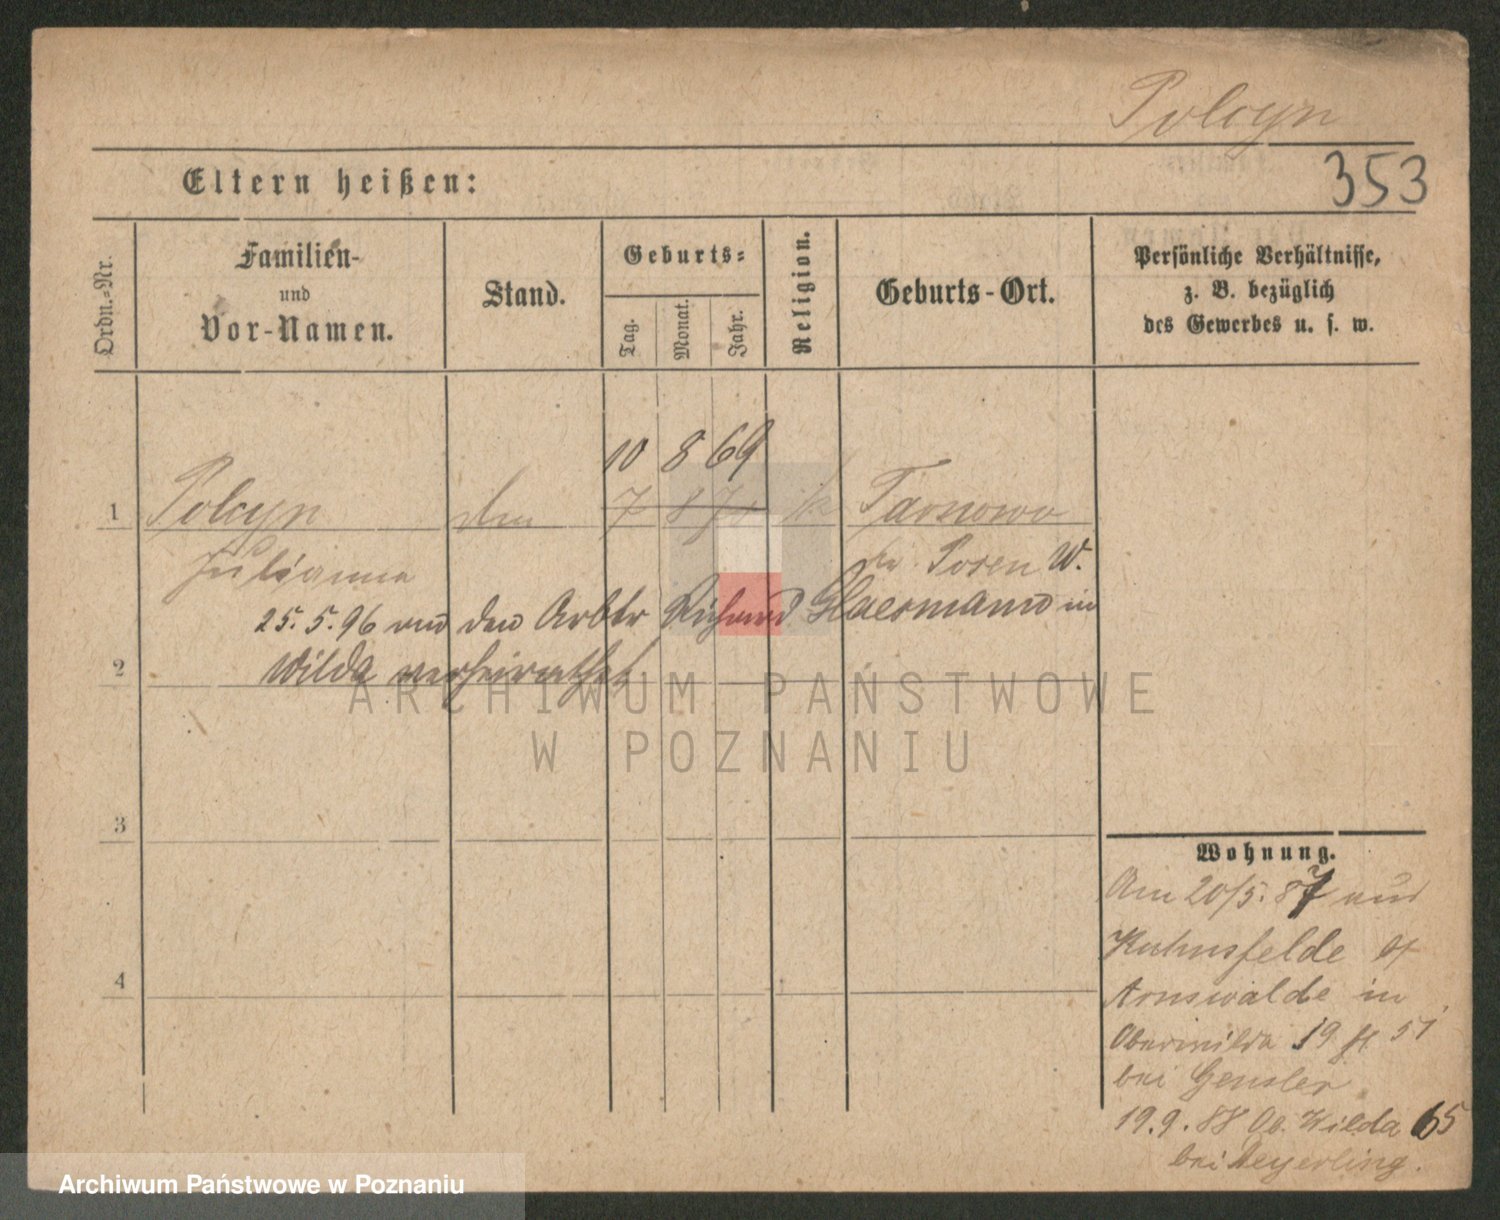 Polcyn
Eltern heißen:
353
Ordn.=Nr.
Familien-
und
Vor-Namen.
Stand.
Geburts=
Tag.
Monat.
Jahr.
Religion.
Geburts-Ort.
Persönliche Verhältnisse,
z. B. bezüglich
des Gewerbes u. s. w.
10 8 69
1 Polcyn 7 8 7 k Tarnowo
Julianna Posen W.
25. 5. 96 den Arbtr Richard Glaesmann in
2 Wilda verheirathet
3
4
Wohnung.
Am 20/5. 87 aus
Kuhnsfelde
Arnswalde in
Oberwilda 19 51
bei Gensler
19. 9. 88 Ob. Wilda 65
bei Beyerling.
ARCHIWUM PAŃSTWOWE
W POZNANIU
Archiwum Państwowe w Poznaniu